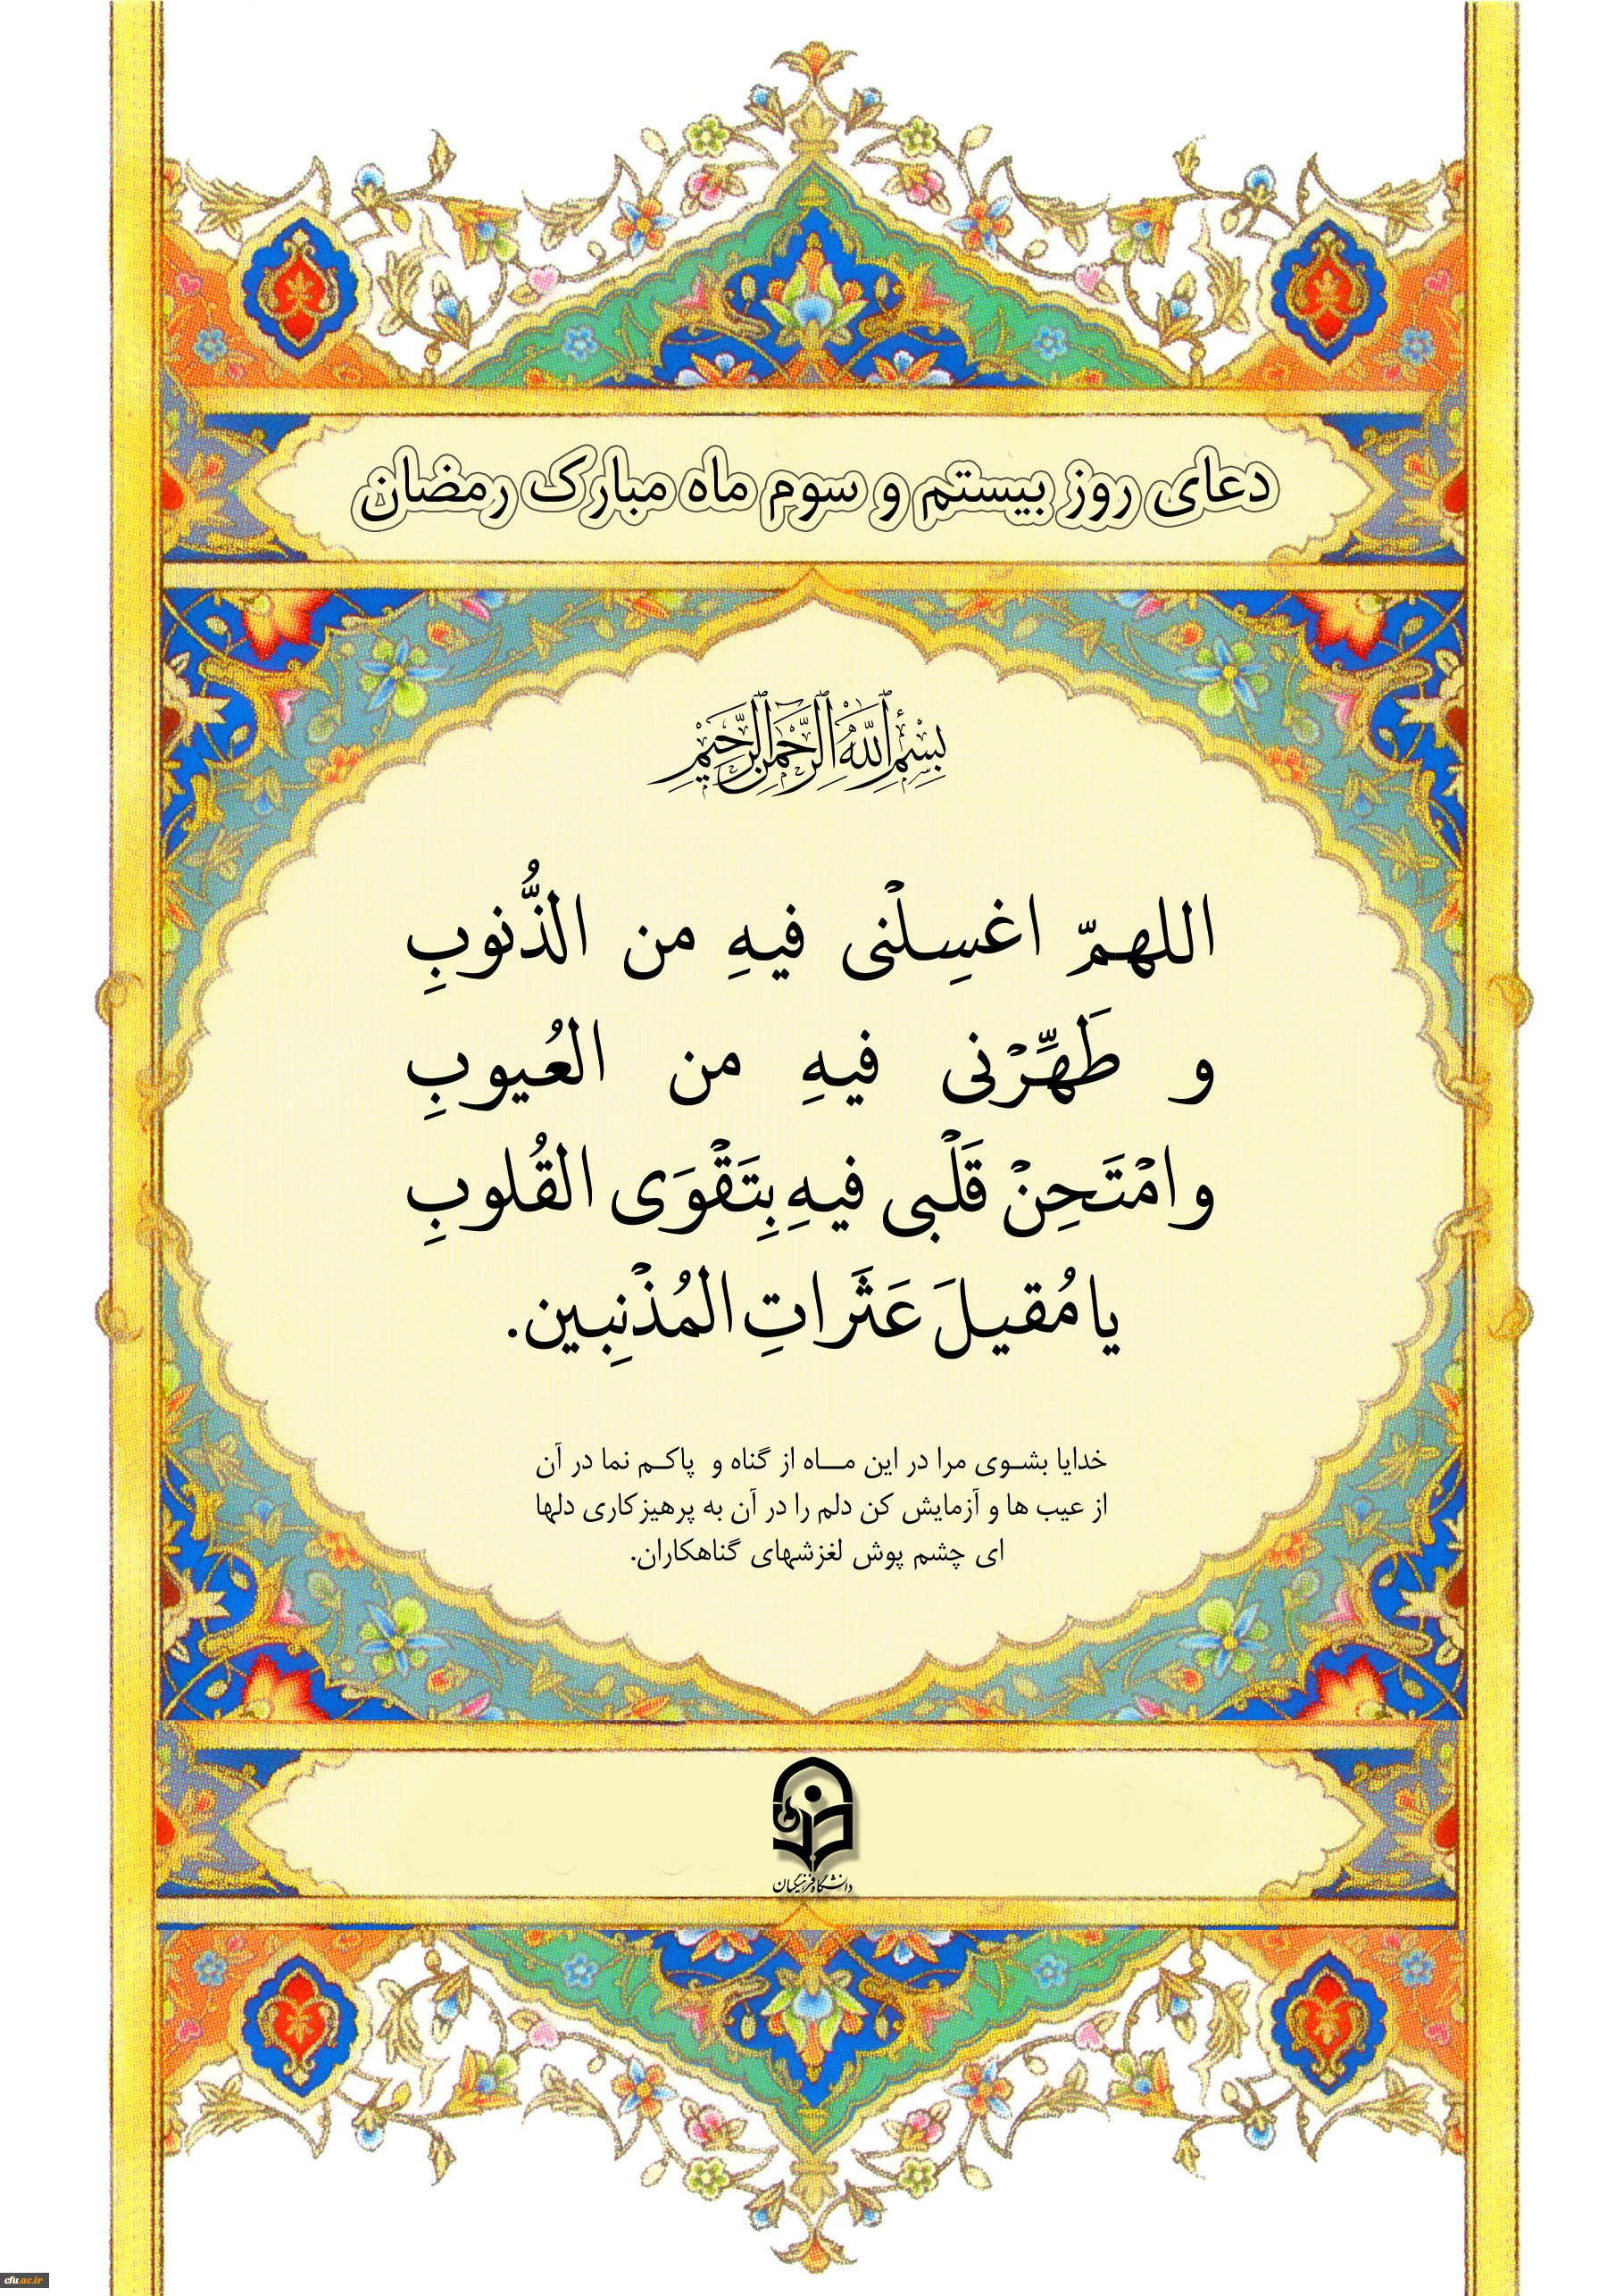 دعای روز بیستم و سوم ماه مبارک رمضان
بِسْمِ اللَّهِ الرَّحْمَنِ الرَّحِيمِ
اللهمّ اغسِلْنی فیهِ من الذُّنوبِ
و طَهِّرْنی فیهِ من العُیوبِ
وامْتَحِنْ قَلْبی فیهِ بِتَقْوَی القُلوبِ
یا مُقیلَ عَثَراتِ المُذْنِبین.
خدایا بشوی مرا در این ماه از گناه و پاکم نما در آن
از عیب ها و آزمایش کن دلم را در آن به پرهیزکاری دلها
ای چشم پوش لغزشهای گناهکاران.
دانشگاه فرهنگیان
cfu.ac.ir